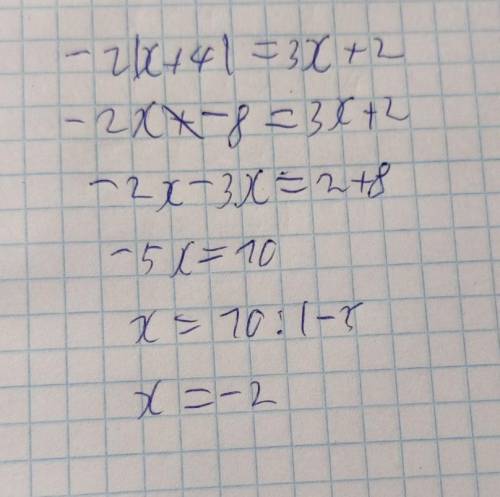 -2|x+4|=3x+2
-2x-8=3x+2
-2x-3x=2+8
-5x=10
x=10:(-5
x=-2